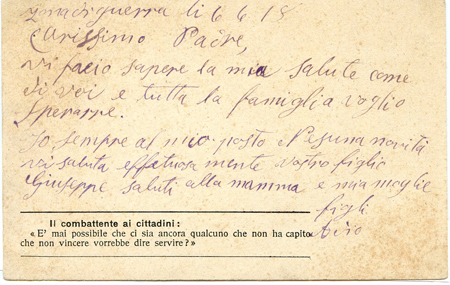 guerra li 6 6 18
Carissimo Padre,
vi facio sapere la mia salute come
di voi e tutta la famiglia voglio
sperarre.
Io sempre al mio posto Nesuna novità
vi saluta effetuosa mente vostro figlio
Giuseppe saluti alla mamma e mia moglie
figli
Il combattente ai cittadini:
«E' mai possibile che ci sia ancora qualcuno che non ha capito
che non vincere vorrebbe dire servire?»